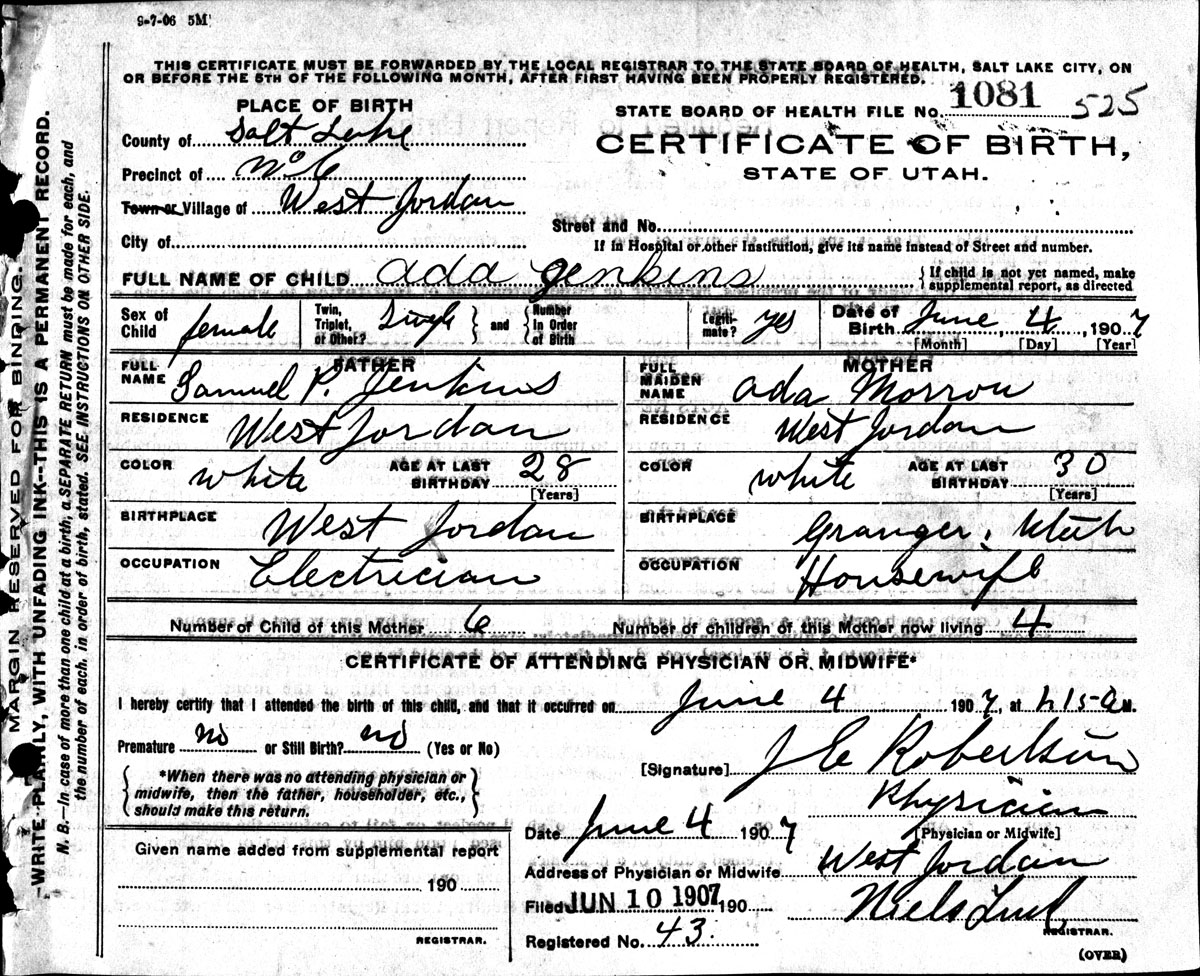 9-7-06 5M
THIS CERTIFICATE MUST BE FORWARDED BY THE LOCAL REGISTRAR TO THE STATE BOARD OF HEALTH, SALT LAKE CITY, ON
OR BEFORE THE 5TH OF THE FOLLOWING MONTH, AFTER FIRST HAVING BEEN PROPERLY REGISTERED.
PLACE OF BIRTH
STATE BOARD OF HEALTH FILE No. 1081 525
County of Salt Lake
CERTIFICATE OF BIRTH,
Precinct of No 6
STATE OF UTAH.
Town or Village of West Jordan
Street and No.
City of
If in Hospital or other Institution, give its name instead of Street and number.
FULL NAME OF CHILD Ada Jenkins
If child is not yet named, make
supplemental report, as directed
Sex of Child female
Twin, Triplet, or Other? Single and Number in Order of Birth
Legitimate? yes
Date of Birth June 4, 1907
[Month] [Day] [Year]
FATHER
FULL NAME Samuel P. Jenkins
RESIDENCE West Jordan
COLOR white AGE AT LAST BIRTHDAY 28
[Years]
BIRTHPLACE West Jordan
OCCUPATION Electrician
MOTHER
FULL MAIDEN NAME Ada Morrow
RESIDENCE West Jordan
COLOR white AGE AT LAST BIRTHDAY 30
[Years]
BIRTHPLACE Granger, Utah
OCCUPATION Housewife
Number of Child of this Mother 6 Number of children of this Mother now living 4
CERTIFICATE OF ATTENDING PHYSICIAN OR MIDWIFE*
I hereby certify that I attended the birth of this child, and that it occurred on June 4 1907, at 15 A M.
Premature no or Still Birth? no (Yes or No)
*When there was no attending physician or
midwife, then the father, householder, etc.,
should make this return.
[Signature] J C Robertson
Physician
[Physician or Midwife]
Date June 4 1907
Address of Physician or Midwife West Jordan
Given name added from supplemental report
190
REGISTRAR.
Filed JUN 10 1907 190 Niels Lind
REGISTRAR.
Registered No. 43.
(OVER)
MARGIN RESERVED FOR BINDING.
WRITE PLAINLY, WITH UNFADING INK--THIS IS A PERMANENT RECORD.
N. B.—In case of more than one child at a birth, a SEPARATE RETURN must be made for each, and
the number of each, in order of birth, stated. SEE INSTRUCTIONS ON OTHER SIDE.